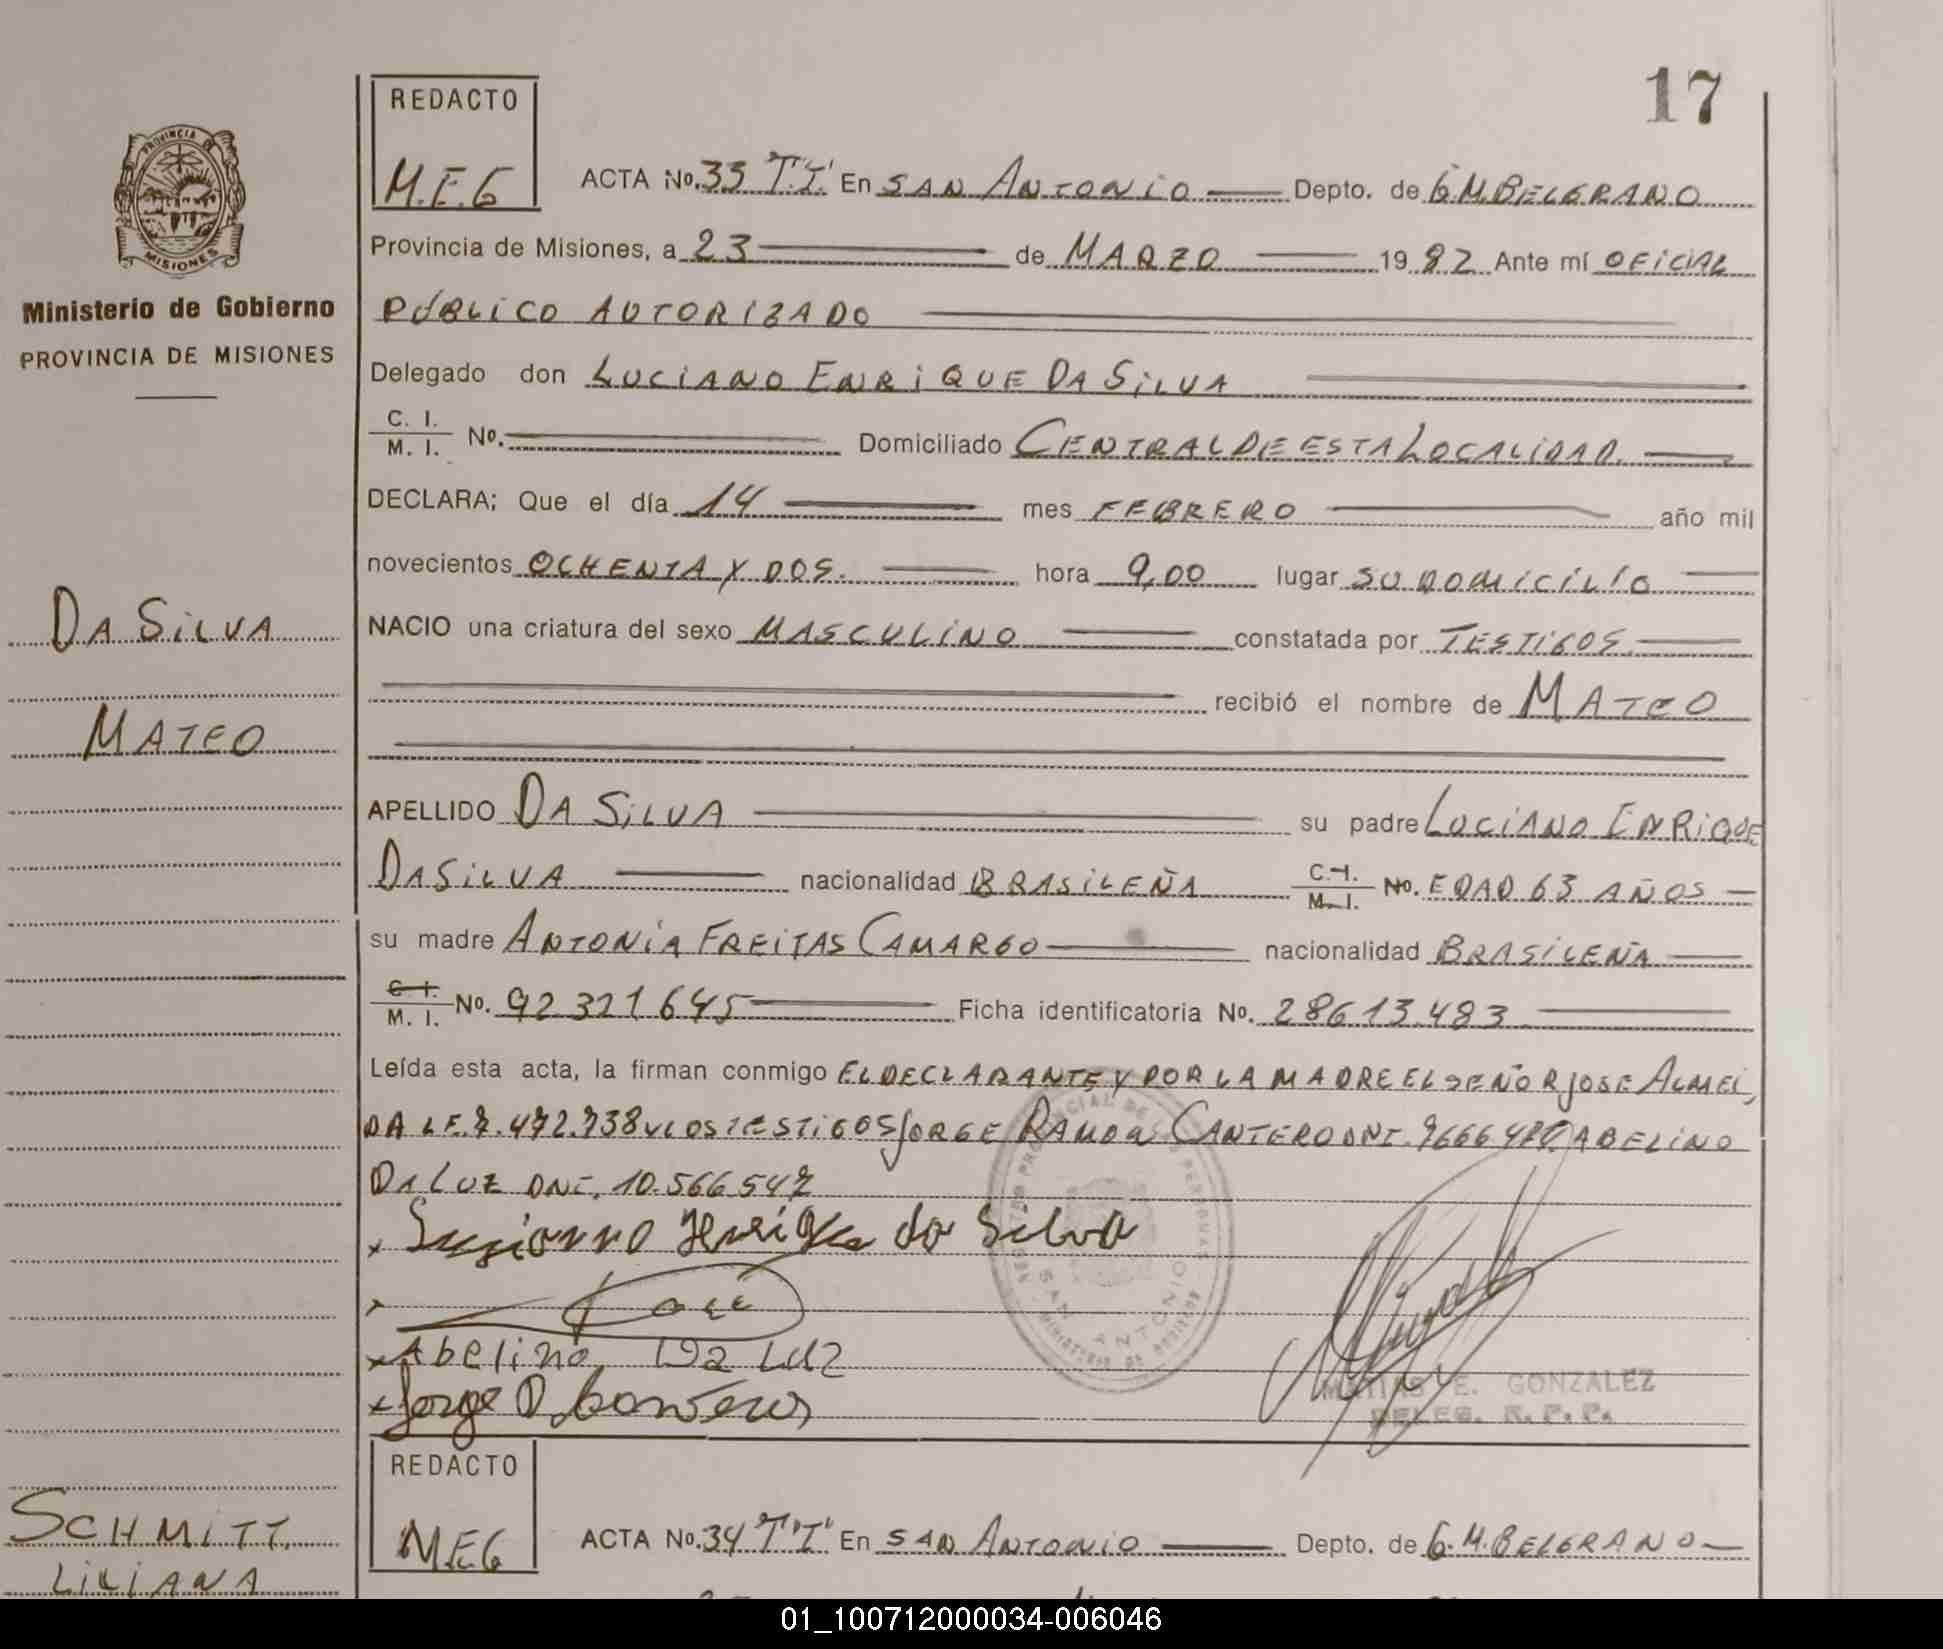 17
REDACTO
M.E.G
ACTA No. 33 "T.I." En SAN ANTONIO Depto. de G.M.BELGRANO
PROVINCIA DE
MISIONES
Ministerio de Gobierno
PROVINCIA DE MISIONES
Provincia de Misiones, a 23 de MARZO 1982 Ante mí OFICIAL
PÚBLICO AUTORIZADO
Delegado don LUCIANO ENRIQUE DA SILVA
C. I. / M. I. No. Domiciliado CENTRAL DE ESTA LOCALIDAD.
DECLARA; Que el día 14 mes FEBRERO año mil
novecientos OCHENTA Y DOS. hora 9,00 lugar SU DOMICILIO
DA SILVA
NACIO una criatura del sexo MASCULINO constatada por TESTIGOS.
recibió el nombre de MATEO
MATEO
APELLIDO DA SILVA su padre LUCIANO ENRIQUE
DA SILVA nacionalidad BRASILEÑA C.I. / M.I. No. EDAD 63 AÑOS
su madre ANTONIA FREITAS CAMARGO nacionalidad BRASILEÑA
C.I. / M. I. No. 92 321 645 Ficha identificatoria No. 28613.483
Leída esta acta, la firman conmigo EL DECLARANTE Y POR LA MADRE EL SEÑOR JOSE ALMEI
DA LE. 7.472.738 Y LOS TESTIGOS JORGE RAMON CANTERO DNI. ABELINO
DA LUZ DNI. 10.566.547
da Silva
Abelino Da Luz
Jorge
SAN ANTONIO
MATIAS E. GONZALEZ
DELEG. R. P. P.
REDACTO
M.E.G
ACTA No. 34 "T.I." En SAN ANTONIO Depto. de G.M.BELGRANO
SCHMITT,
LILIANA
01_100712000034-006046